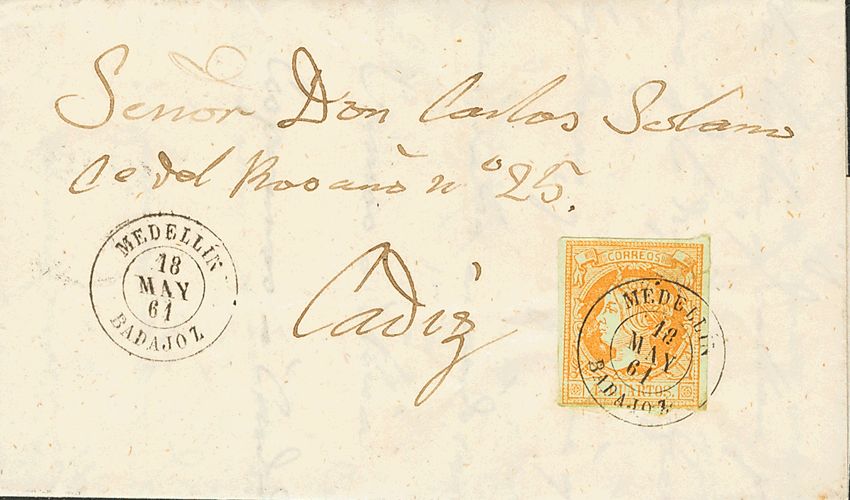 Señor Don Carlos Solano
Ce del Rosario nº 25.
Cadiz
MEDELLÍN
18
MAY
61
BADAJOZ
CORREOS
CUARTOS
MEDELLÍN
18
MAY
61
BADAJOZ